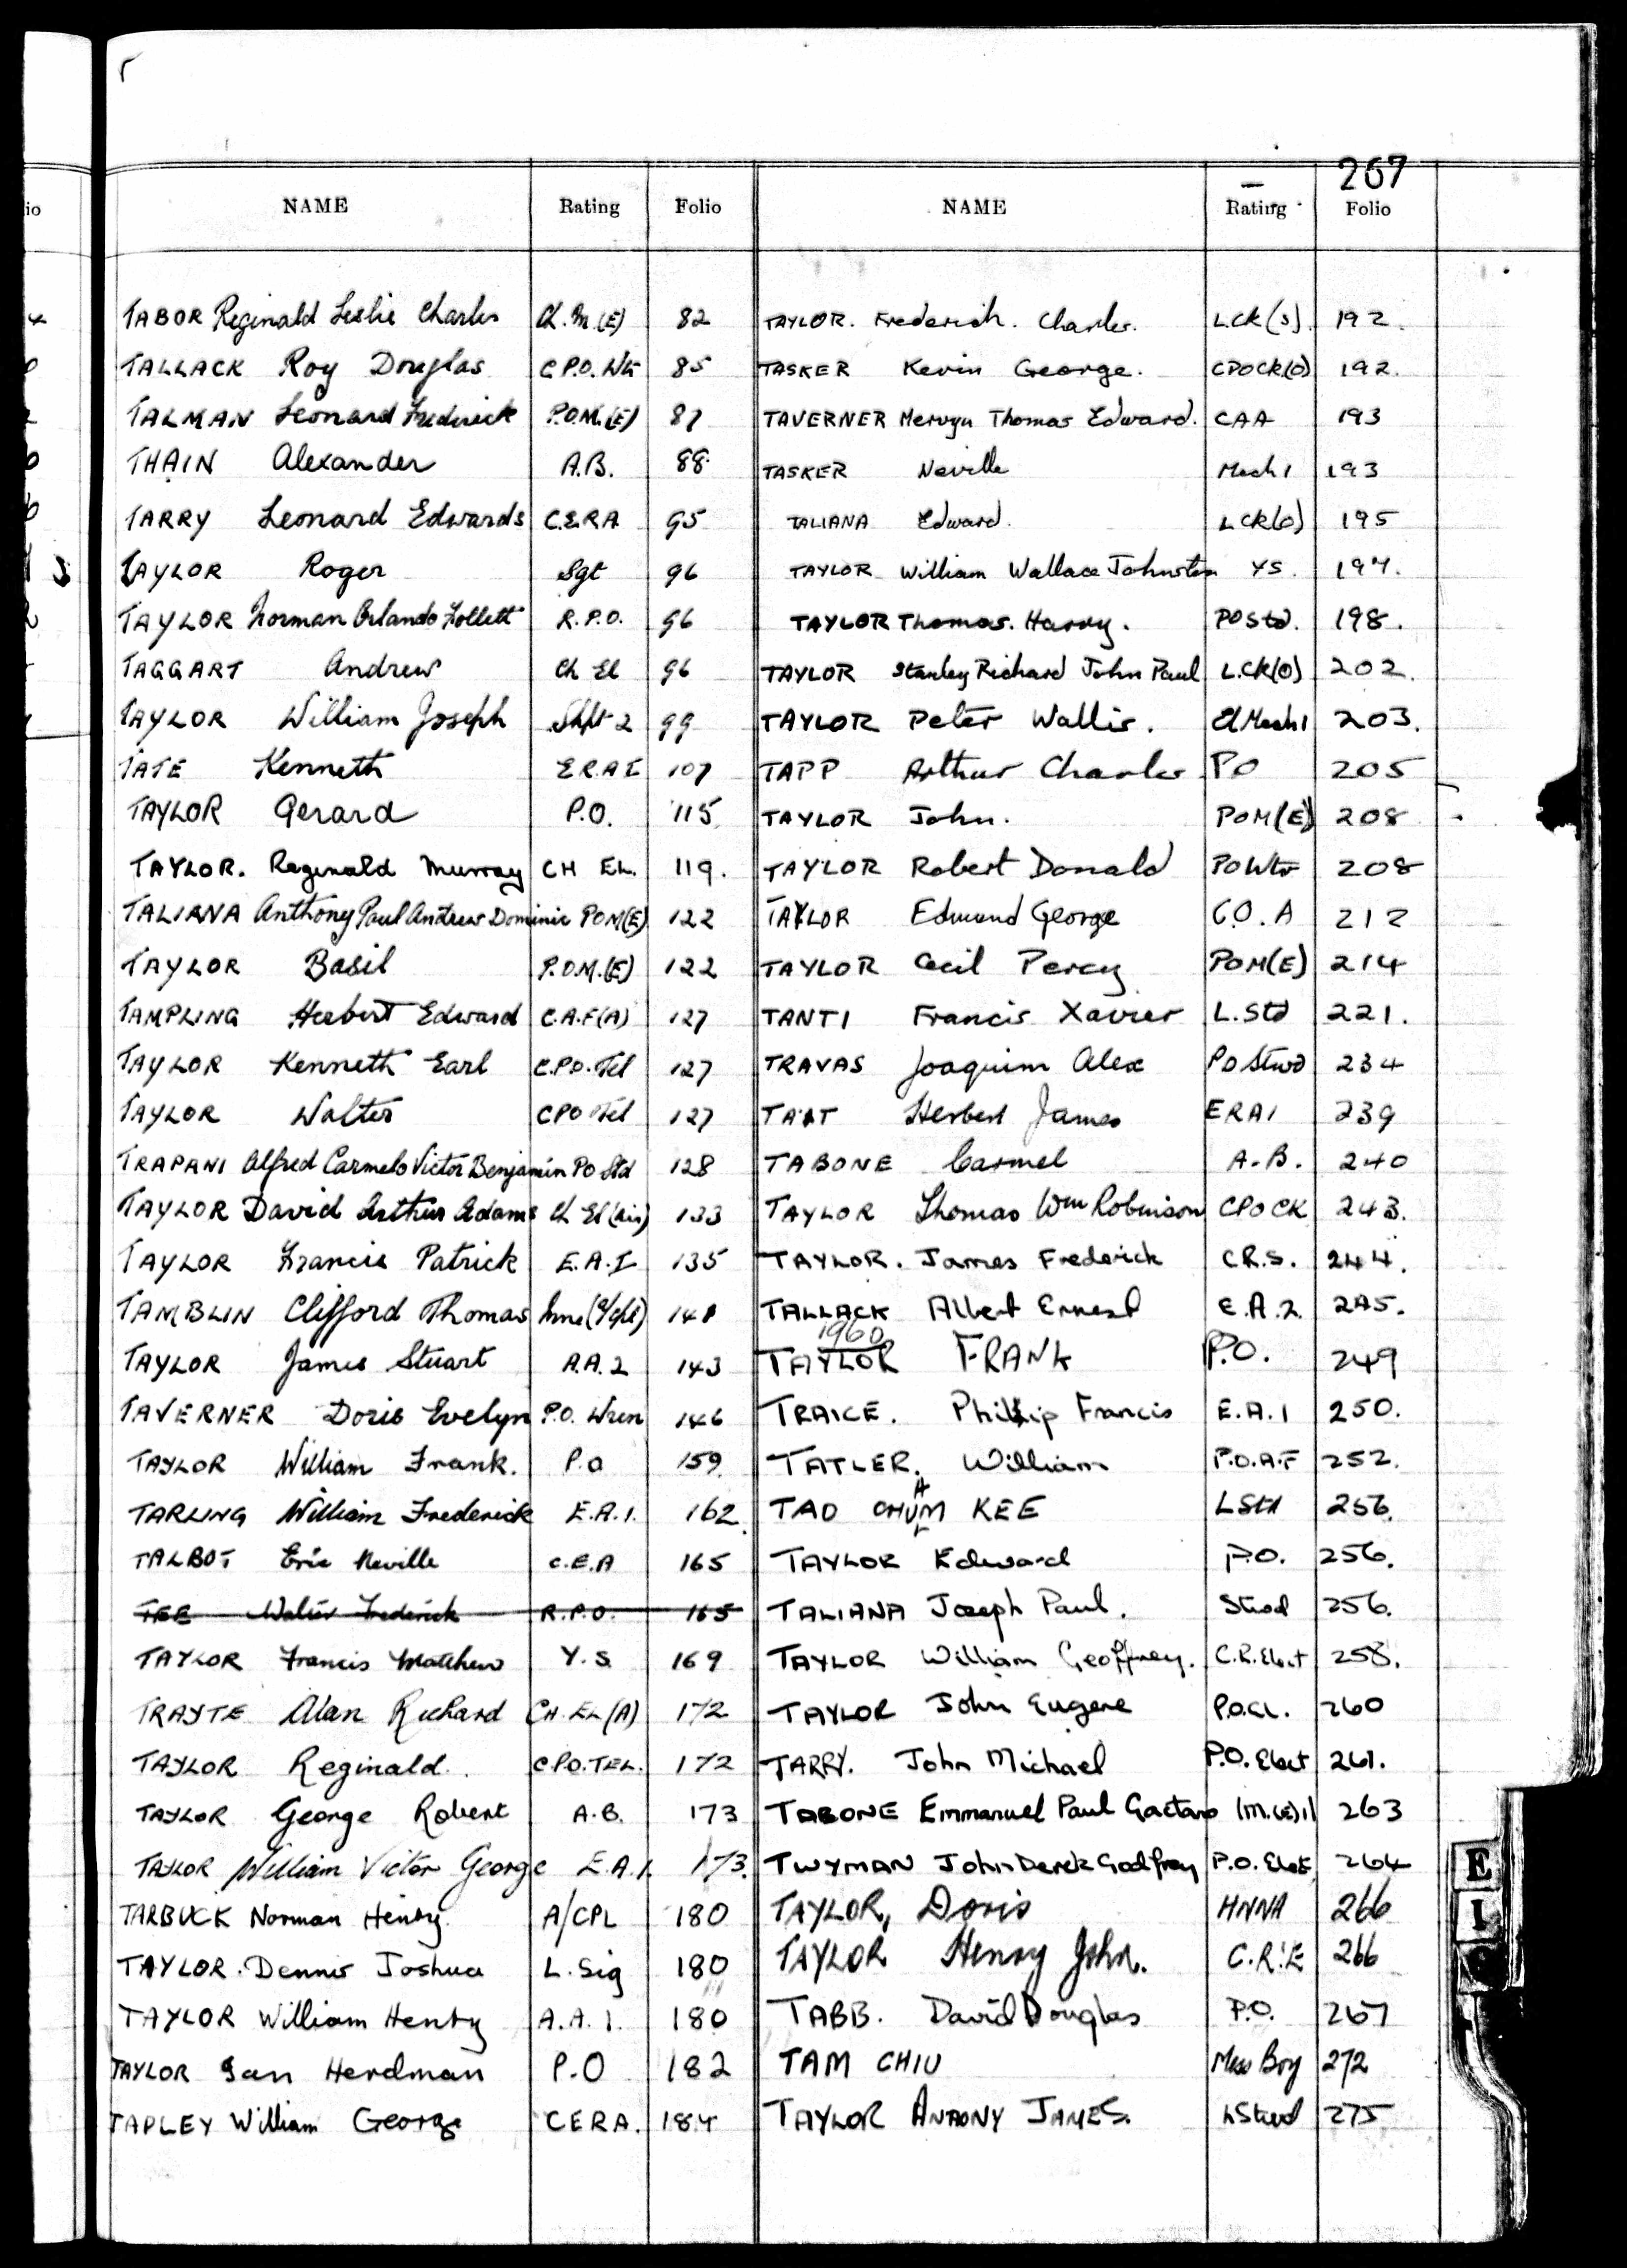 267
NAME Rating Folio
TABOR Reginald Leslie Charles Ch.M.(E) 82
TALLACK Roy Douglas C.P.O. Wtr 85
TALMAN Leonard Frederick P.O.M.(E) 87
THAIN Alexander A.B. 88
TARRY Leonard Edwards C.E.R.A 95
TAYLOR Roger Sgt 96
TAYLOR Norman Orlando Follett R.P.O. 96
TAGGART Andrew Ch El 96
TAYLOR William Joseph Shpt 2 99
TATE Kenneth E.R.A I 107
TAYLOR Gerard P.O. 115
TAYLOR. Reginald Murray CH EL. 119.
TALIANA Anthony Paul Andrew Dominic POM(E) 122
TAYLOR Basil P.O.M.(E) 122
TAMPLING Herbert Edward C.A.F(A) 127
TAYLOR Kenneth Earl C.P.O. Tel 127
TAYLOR Walter CPO Tel 127
TRAPANI Alfred Carmelo Victor Benjamin Po Std 128
TAYLOR David Arthur Adams Ch El (Air) 133
TAYLOR Francis Patrick E.A.I 135
TAMBLIN Clifford Thomas 141
TAYLOR James Stuart A.A.2 143
TAVERNER Doris Evelyn P.O. Wren 146
TAYLOR William Frank. P.O 159
TARLING William Frederick E.A.1. 162
TALBOT Eric Neville C.E.A 165
TEE Walter Frederick R.P.O. 165
TAYLOR Francis Matthew Y.S. 169
TRAYTE Alan Richard CH.EL(A) 172
TAYLOR Reginald. C.P.O.TEL. 172
TAYLOR George Robert A.B. 173
TAYLOR William Victor George E.A.1. 173.
TARBUCK Norman Henry. A/CPL 180
TAYLOR. Dennis Joshua L.Sig 180
TAYLOR William Henry A.A.1. 180
TAYLOR Ian Herdman P.O 182
TAPLEY William George CERA. 184
NAME Rating Folio
TAYLOR. Frederick. Charles. L.CK(S). 192.
TASKER Kevin George. CPOCK(O) 192.
TAVERNER Mervyn Thomas Edward. CAA 193
TASKER Neville Mech1 193
TALIANA Edward. LCK(O) 195
TAYLOR William Wallace Johnston YS. 197.
TAYLOR Thomas. Harry. POStd. 198.
TAYLOR Stanley Richard John Paul L.CK(O) 202.
TAYLOR Peter Wallis. El Mech1 203.
TAPP Arthur Charles PO 205
TAYLOR John. POM(E) 208
TAYLOR Robert Donald PoWtr 208
TAYLOR Edmund George C.O.A 212
TAYLOR Cecil Percy POM(E) 214
TANTI Francis Xavier L.Std 221.
TRAVAS Joaquim Alex PO Stwd 234
TAIT Herbert James ERA1 239
TABONE Carmel A.B. 240
TAYLOR Thomas Wm Robinson CPOCK 243.
TAYLOR. James Frederick C.R.S. 244.
TALLACK Albert Ernest E.A.2. 245.
1960
TAYLOR FRANK P.O. 249
TRAICE. Phillip Francis E.A.1 250.
TATLER. William P.O.A.F 252.
TAO CHUM KEE LStd 256
TAYLOR Edward P.O. 256.
TALIANA Joseph Paul. Stwd 256.
TAYLOR William Geoffrey. C.R.Elect 258.
TAYLOR John Eugene 260
TARRY. John Michael P.O. Elect 261.
TABONE Emmanuel Paul Gaetano (M.(E)1) 263
TWYMAN John Derek Godfrey P.O. Elect 264
TAYLOR, Doris HNNA 266
TAYLOR Henry John. C.R.E 266
TABB. David Douglas P.O. 267
TAM CHIU Mess Boy 272
TAYLOR ANTONY JAMES. LStwd 275
E
I